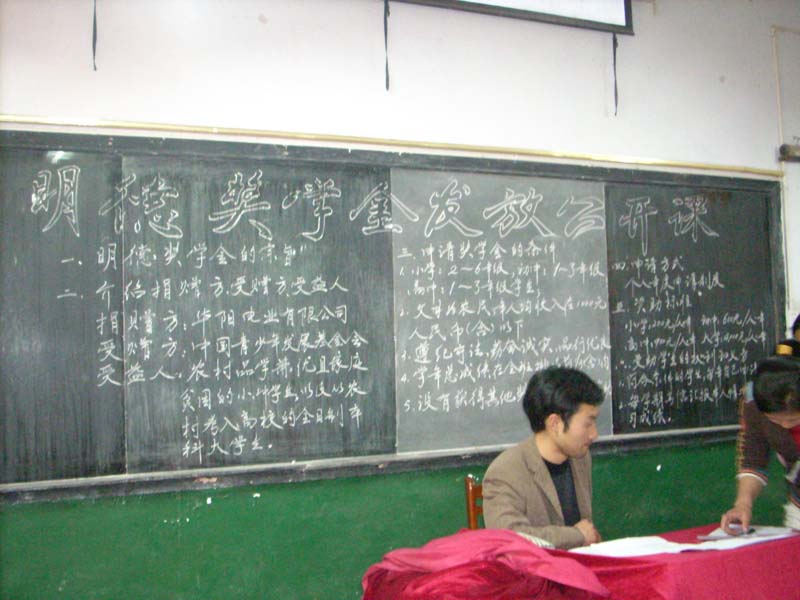 明德奖学金发放公开课
一、明德奖学金的宗旨
二、介绍捐赠方、受赠方、受益人
捐赠方：华阳电业有限公司
受赠方：中国青少年发展基金会
受益人：农村品学兼优且家庭
贫困的小中学生，以及以农
村考入高校的全日制本
科大学生。
三、申请奖学金的条件
1、小学：2~6年级，初中：1~3年级
高中：1~3年级学生；
2、父母为农民，年人均收入在1000元
人民币(含)以下
3、遵纪守法，勤奋诚实，品行优良
4、学年总成绩在全班排
5、没有获得其他
四、申请方式
个人年度申请制度
五、资助标准
小学400元/人年 初中600元/人年
受助学生的权利和义务
习成绩。